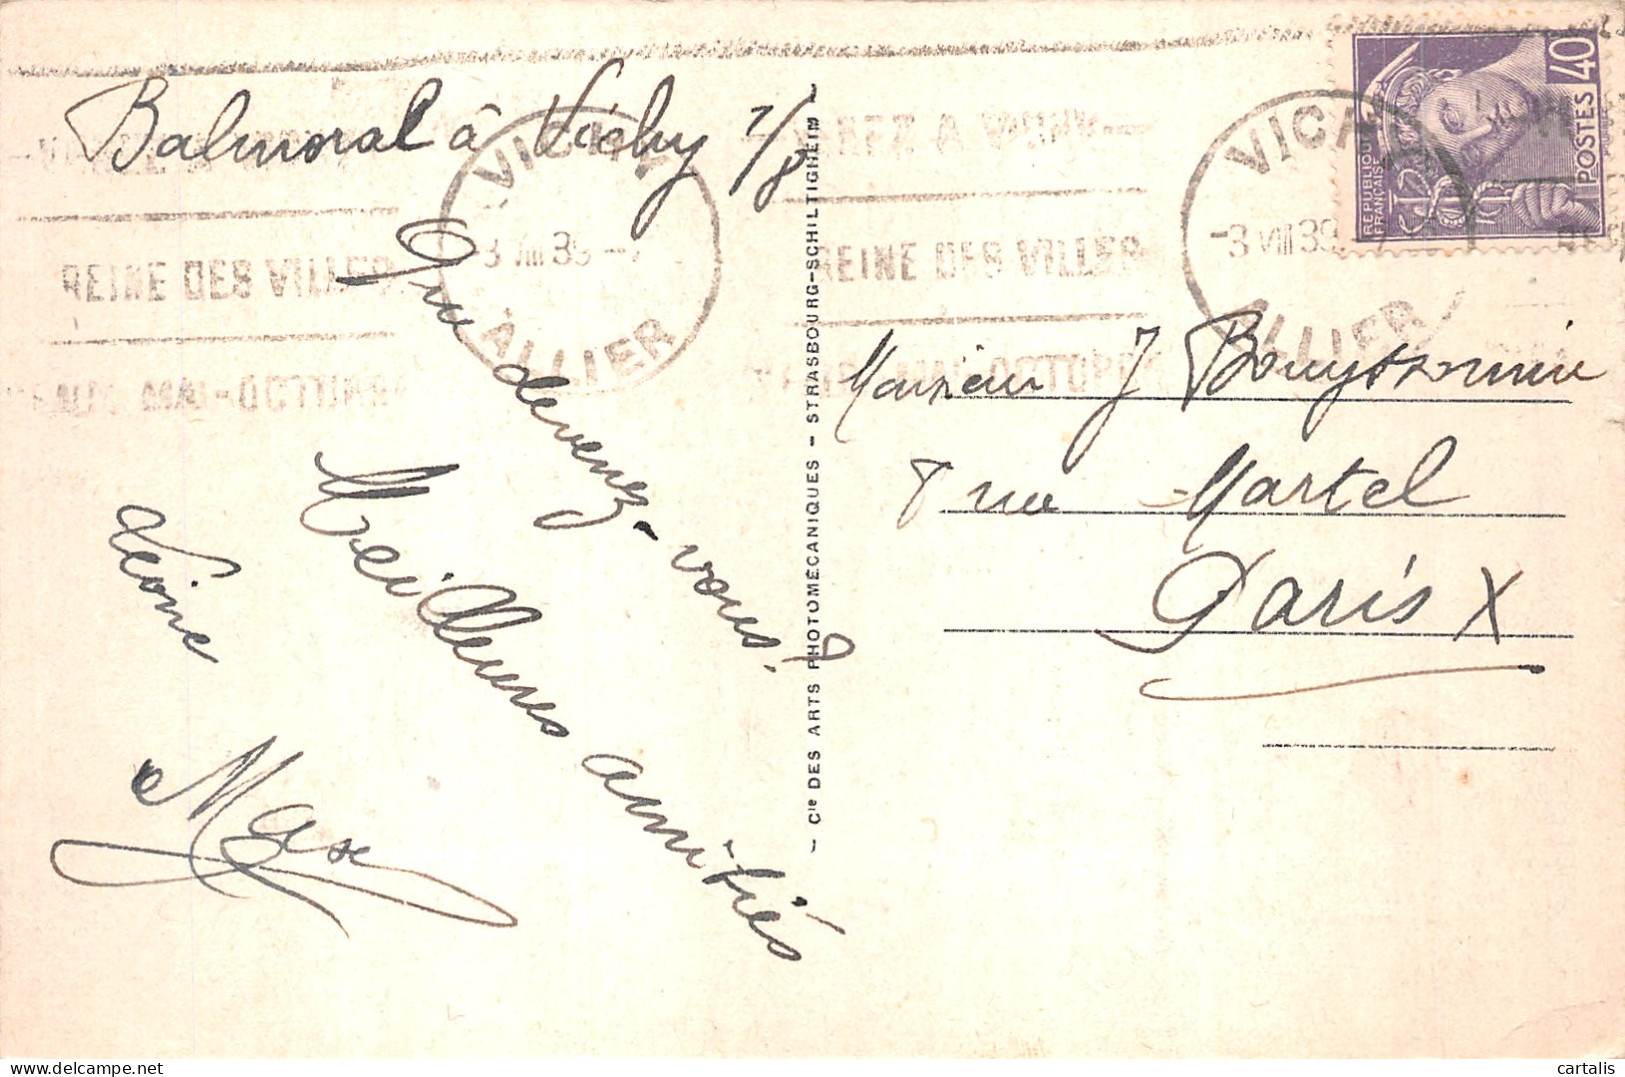 Balmoral à Vichy 7/8
Que devenez-vous?
Meilleures amitiés
Max
VICHY
-3 VIII 39
ALLIER
REINE DES VILLES
MAI-OCTOBRE
— Cie DES ARTS PHOTOMÉCANIQUES — STRASBOURG-SCHILTIGHEIM —
VICHY
-3 VIII 39
ALLIER
REINE DES VILLES
RÉPUBLIQUE
FRANÇAISE
POSTES 40
Monsieur J Bouyssonnie
8 rue Martel
Paris X
cartalis